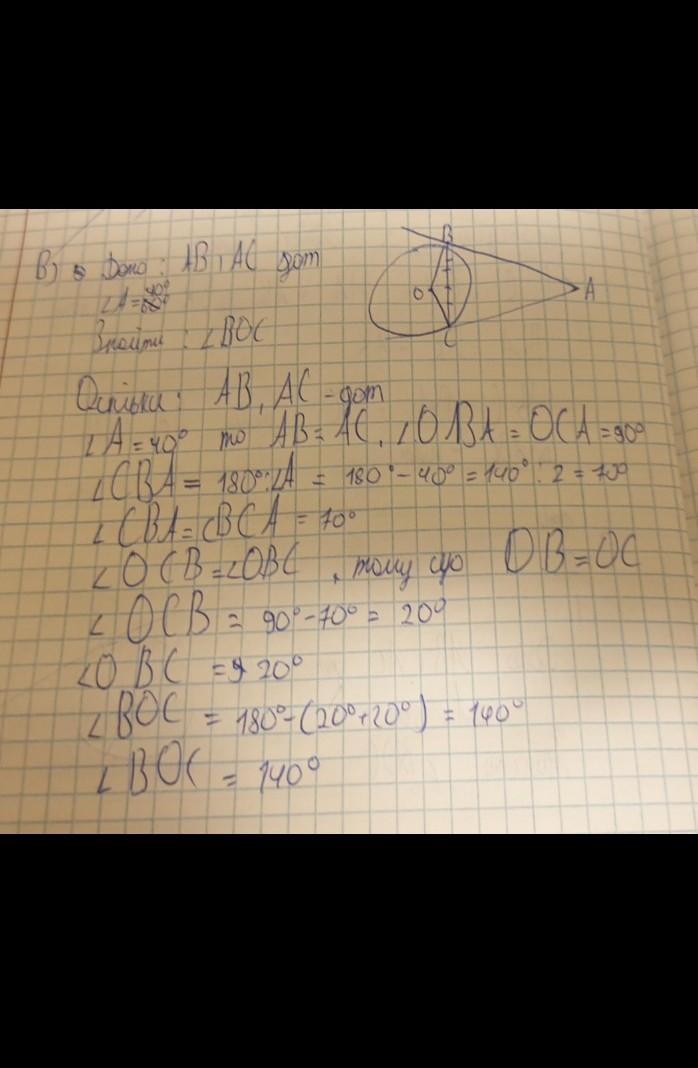 В) Дано: AB, AC дот
∠A = 40°
Знайти: ∠BOC
B
O
A
C
Оскільки: AB, AC - дот
∠A = 40° то AB = AC, ∠OBA = OCA = 90°
∠CBA = 180° : ∠A = 180° - 40° = 140° : 2 = 70°
∠CBA = ∠BCA = 70°
∠OCB = ∠OBC, тому що OB = OC
∠OCB = 90° - 70° = 20°
∠OBC = 20°
∠BOC = 180° - (20° + 20°) = 140°
∠BOC = 140°